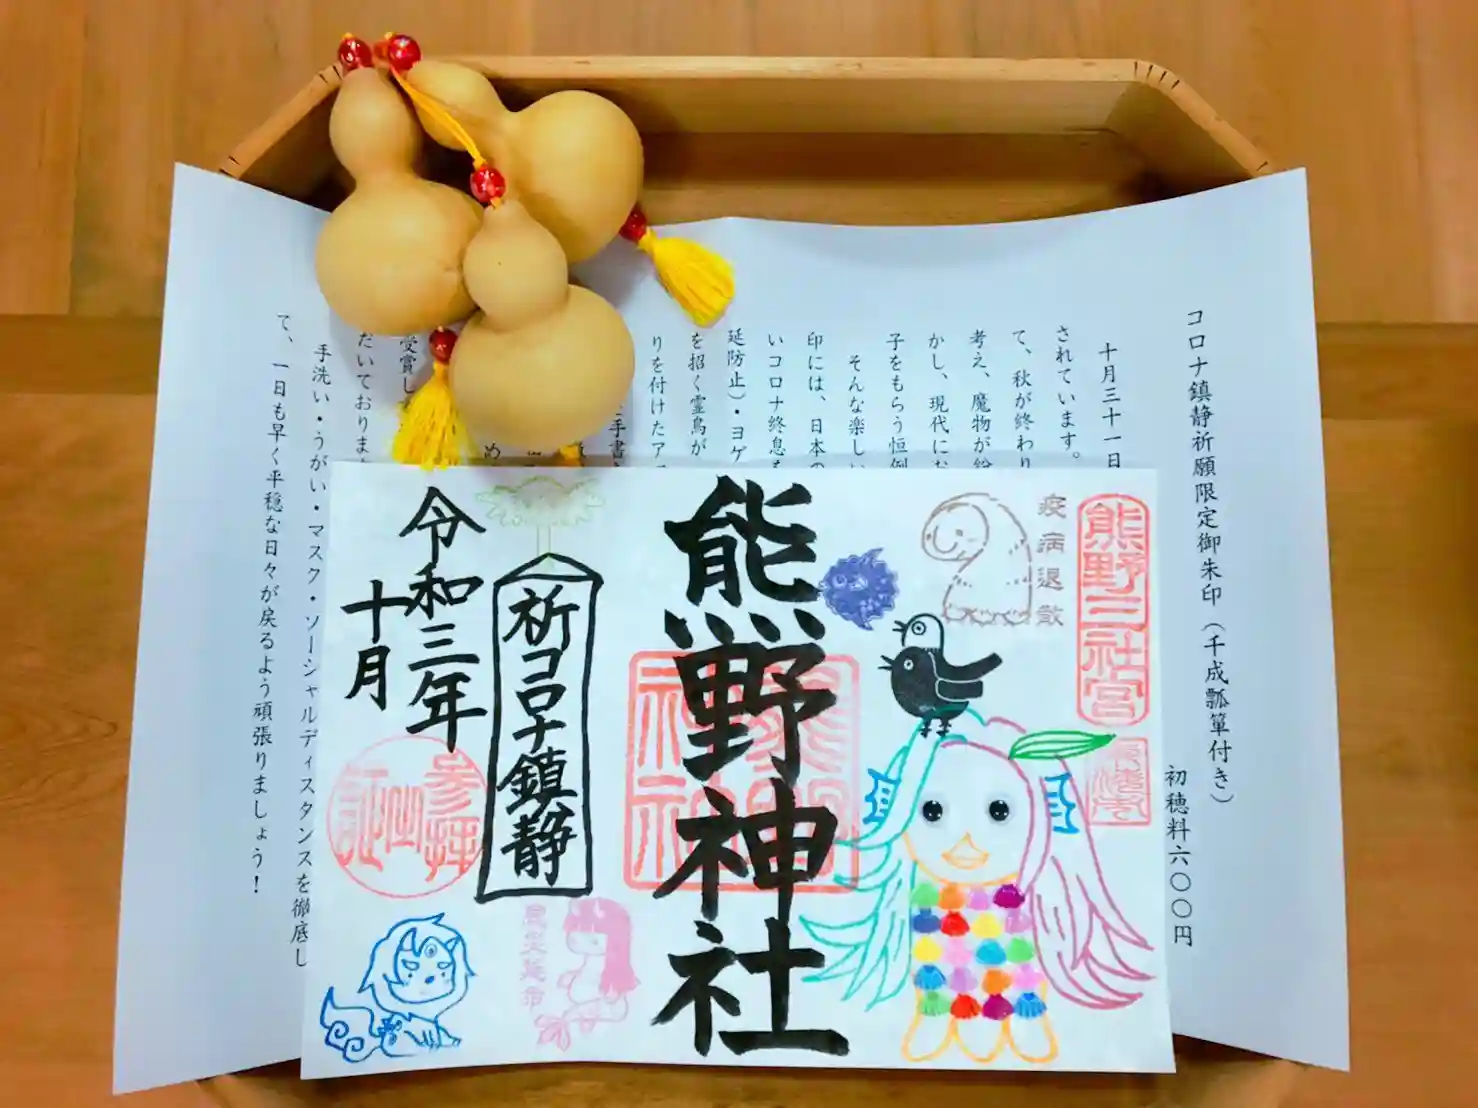 コロナ鎮静祈願限定御朱印(千成瓢箪付き)
初穂料六〇〇〇円
十月三十一日
されています。
て、秋が終わり
考え、魔物が
かし、現代にお
子をもらう恒例
そんな楽しい
印には、日本の
いコロナ終息
延防止)・ヨゲ
を招く霊鳥が
りを付けたア
手書
め
受賞し
だいておりま
手洗い・うがい・マスク・ソーシャルディスタンスを徹底し
て、一日も早く平穏な日々が戻るよう頑張りましょう!
熊野三社宮
疫病退散
熊野神社
祈コロナ鎮静
令和三年
十月
参拝
証